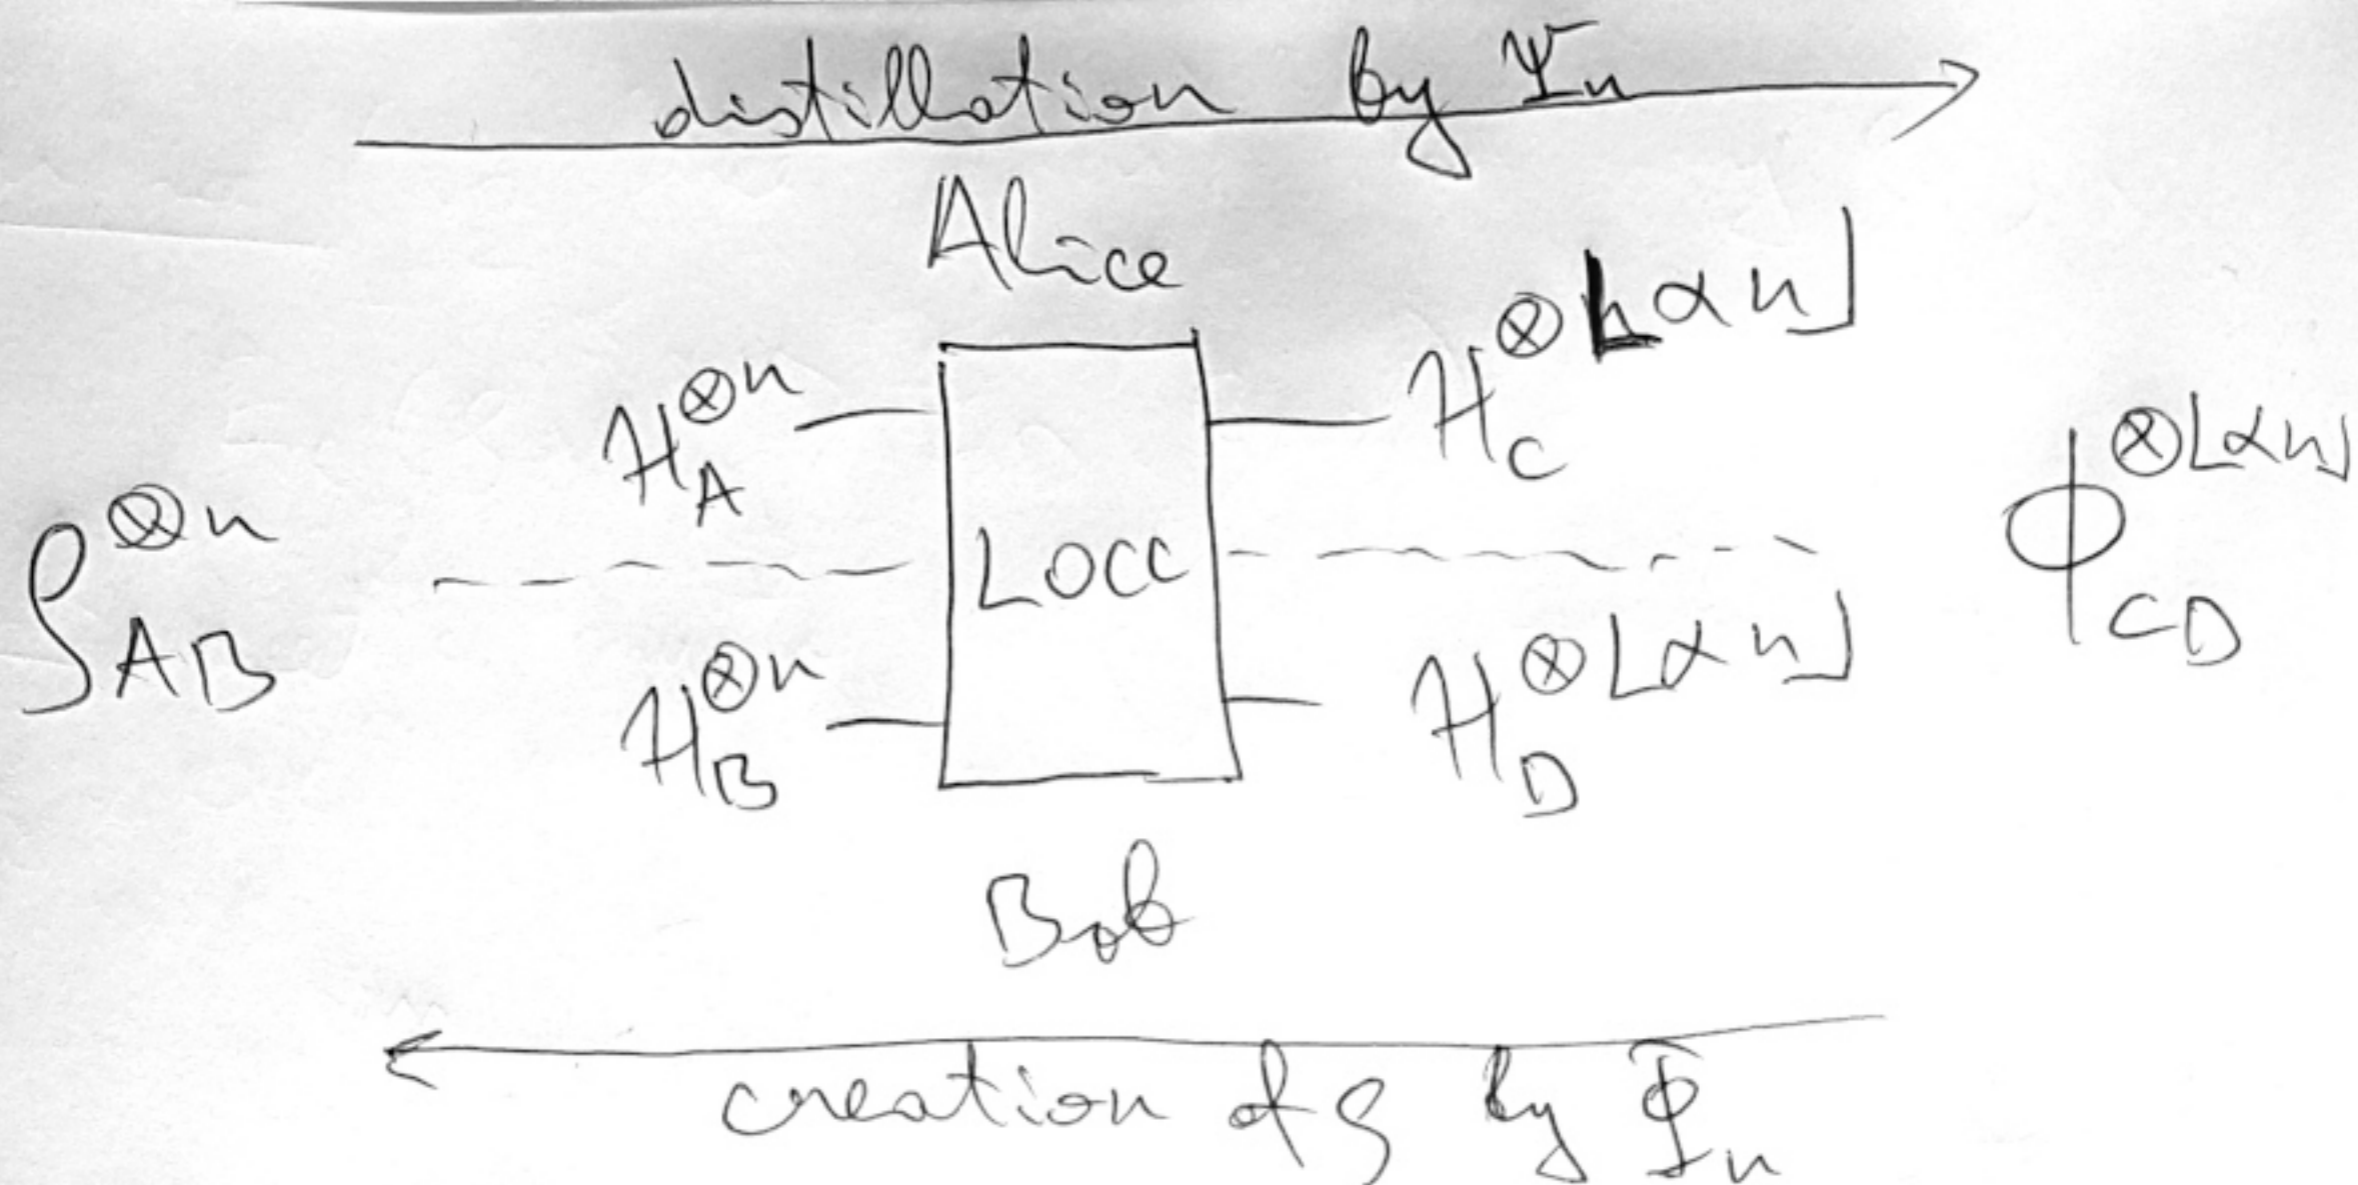 distillation by Ψₙ
Alice
H_A^{⊗n}
H_C^{⊗⌊αn⌋}
ρ_{AB}^{⊗n}
LOCC
ϕ_{CD}^{⊗⌊αn⌋}
H_B^{⊗n}
H_D^{⊗⌊αn⌋}
Bob
creation of ρ by Φₙ